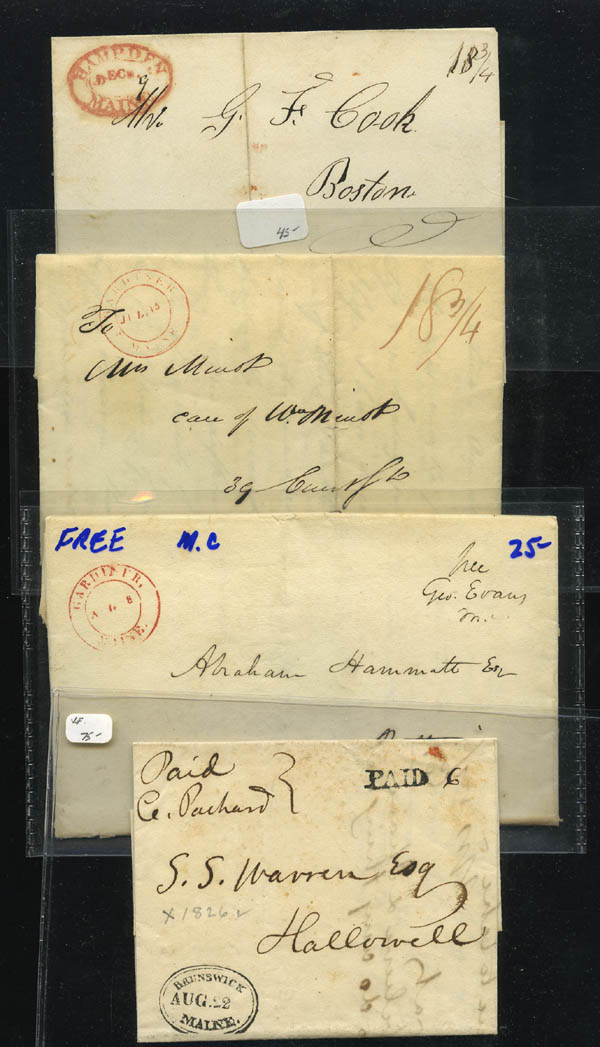 HAMPDEN
DEC
9
MAINE
18 3/4
Mr. G. F. Cook
Boston
45-
GARDINER,
JUL 15
MAINE
18 3/4
To
Mrs Minot
care of Wm Minot
39 Court St
FREE M.C 25-
GARDINER,
8
MAINE.
free
Geo. Evans
m.c.
Abraham Hammatt Esq
75-
Paid
C. Packard
PAID 6
S. S. Warren Esq
x 1826
Hallowell
BRUNSWICK
AUG. 22
MAINE.